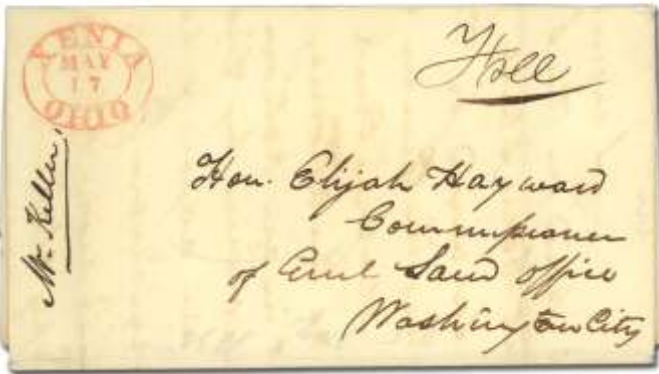 XENIA
MAY
17
OHIO
Free
Mr. Keller
Hon. Elijah Hayward
Commissioner
of Genl Land office
Washington City